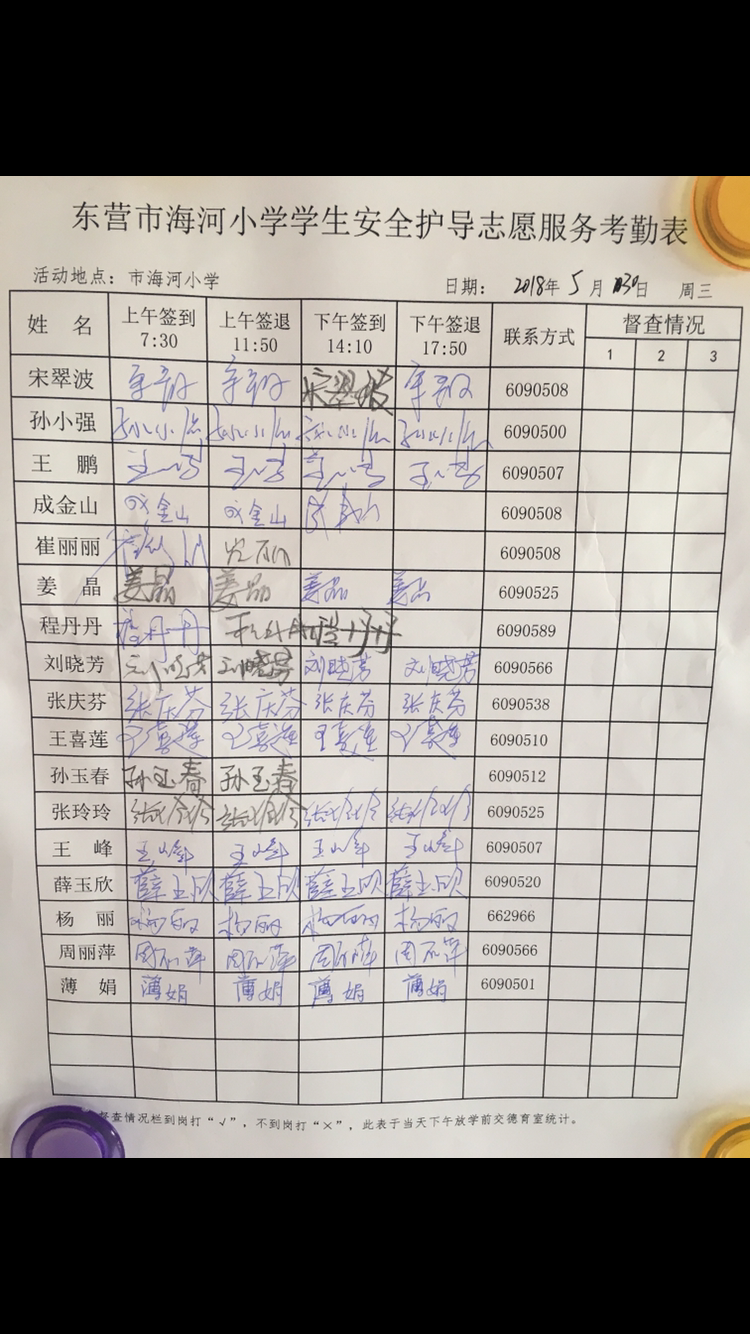 东营市海河小学学生安全护导志愿服务考勤表
活动地点：市海河小学 日期： 2018年 5 月 30日 周三
姓 名 上午签到 7:30 上午签退 11:50 下午签到 14:10 下午签退 17:50 联系方式 督查情况 1 2 3
宋翠波 宋翠波 6090508
孙小强 6090500
王 鹏 6090507
成金山 成金山 成金山 6090508
崔丽丽 6090508
姜 晶 姜晶 姜晶 姜晶 姜晶 6090525
程丹丹 程丹丹 程丹丹 6090589
刘晓芳 刘晓芳 刘晓芳 刘晓芳 6090566
张庆芬 张庆芬 张庆芬 张庆芬 张庆芬 6090538
王喜莲 王喜莲 王喜莲 王喜莲 王喜莲 6090510
孙玉春 孙玉春 孙玉春 6090512
张玲玲 张玲玲 张玲玲 张玲玲 张玲玲 6090525
王 峰 王峰 王峰 王峰 王峰 6090507
薛玉欣 薛玉欣 薛玉欣 薛玉欣 薛玉欣 6090520
杨 丽 杨丽 杨丽 杨丽 杨丽 662966
周丽萍 周丽萍 周丽萍 周丽萍 周丽萍 6090566
薄 娟 薄娟 薄娟 薄娟 薄娟 6090501
督查情况栏到岗打“√”，不到岗打“×”，此表于当天下午放学前交德育室统计。